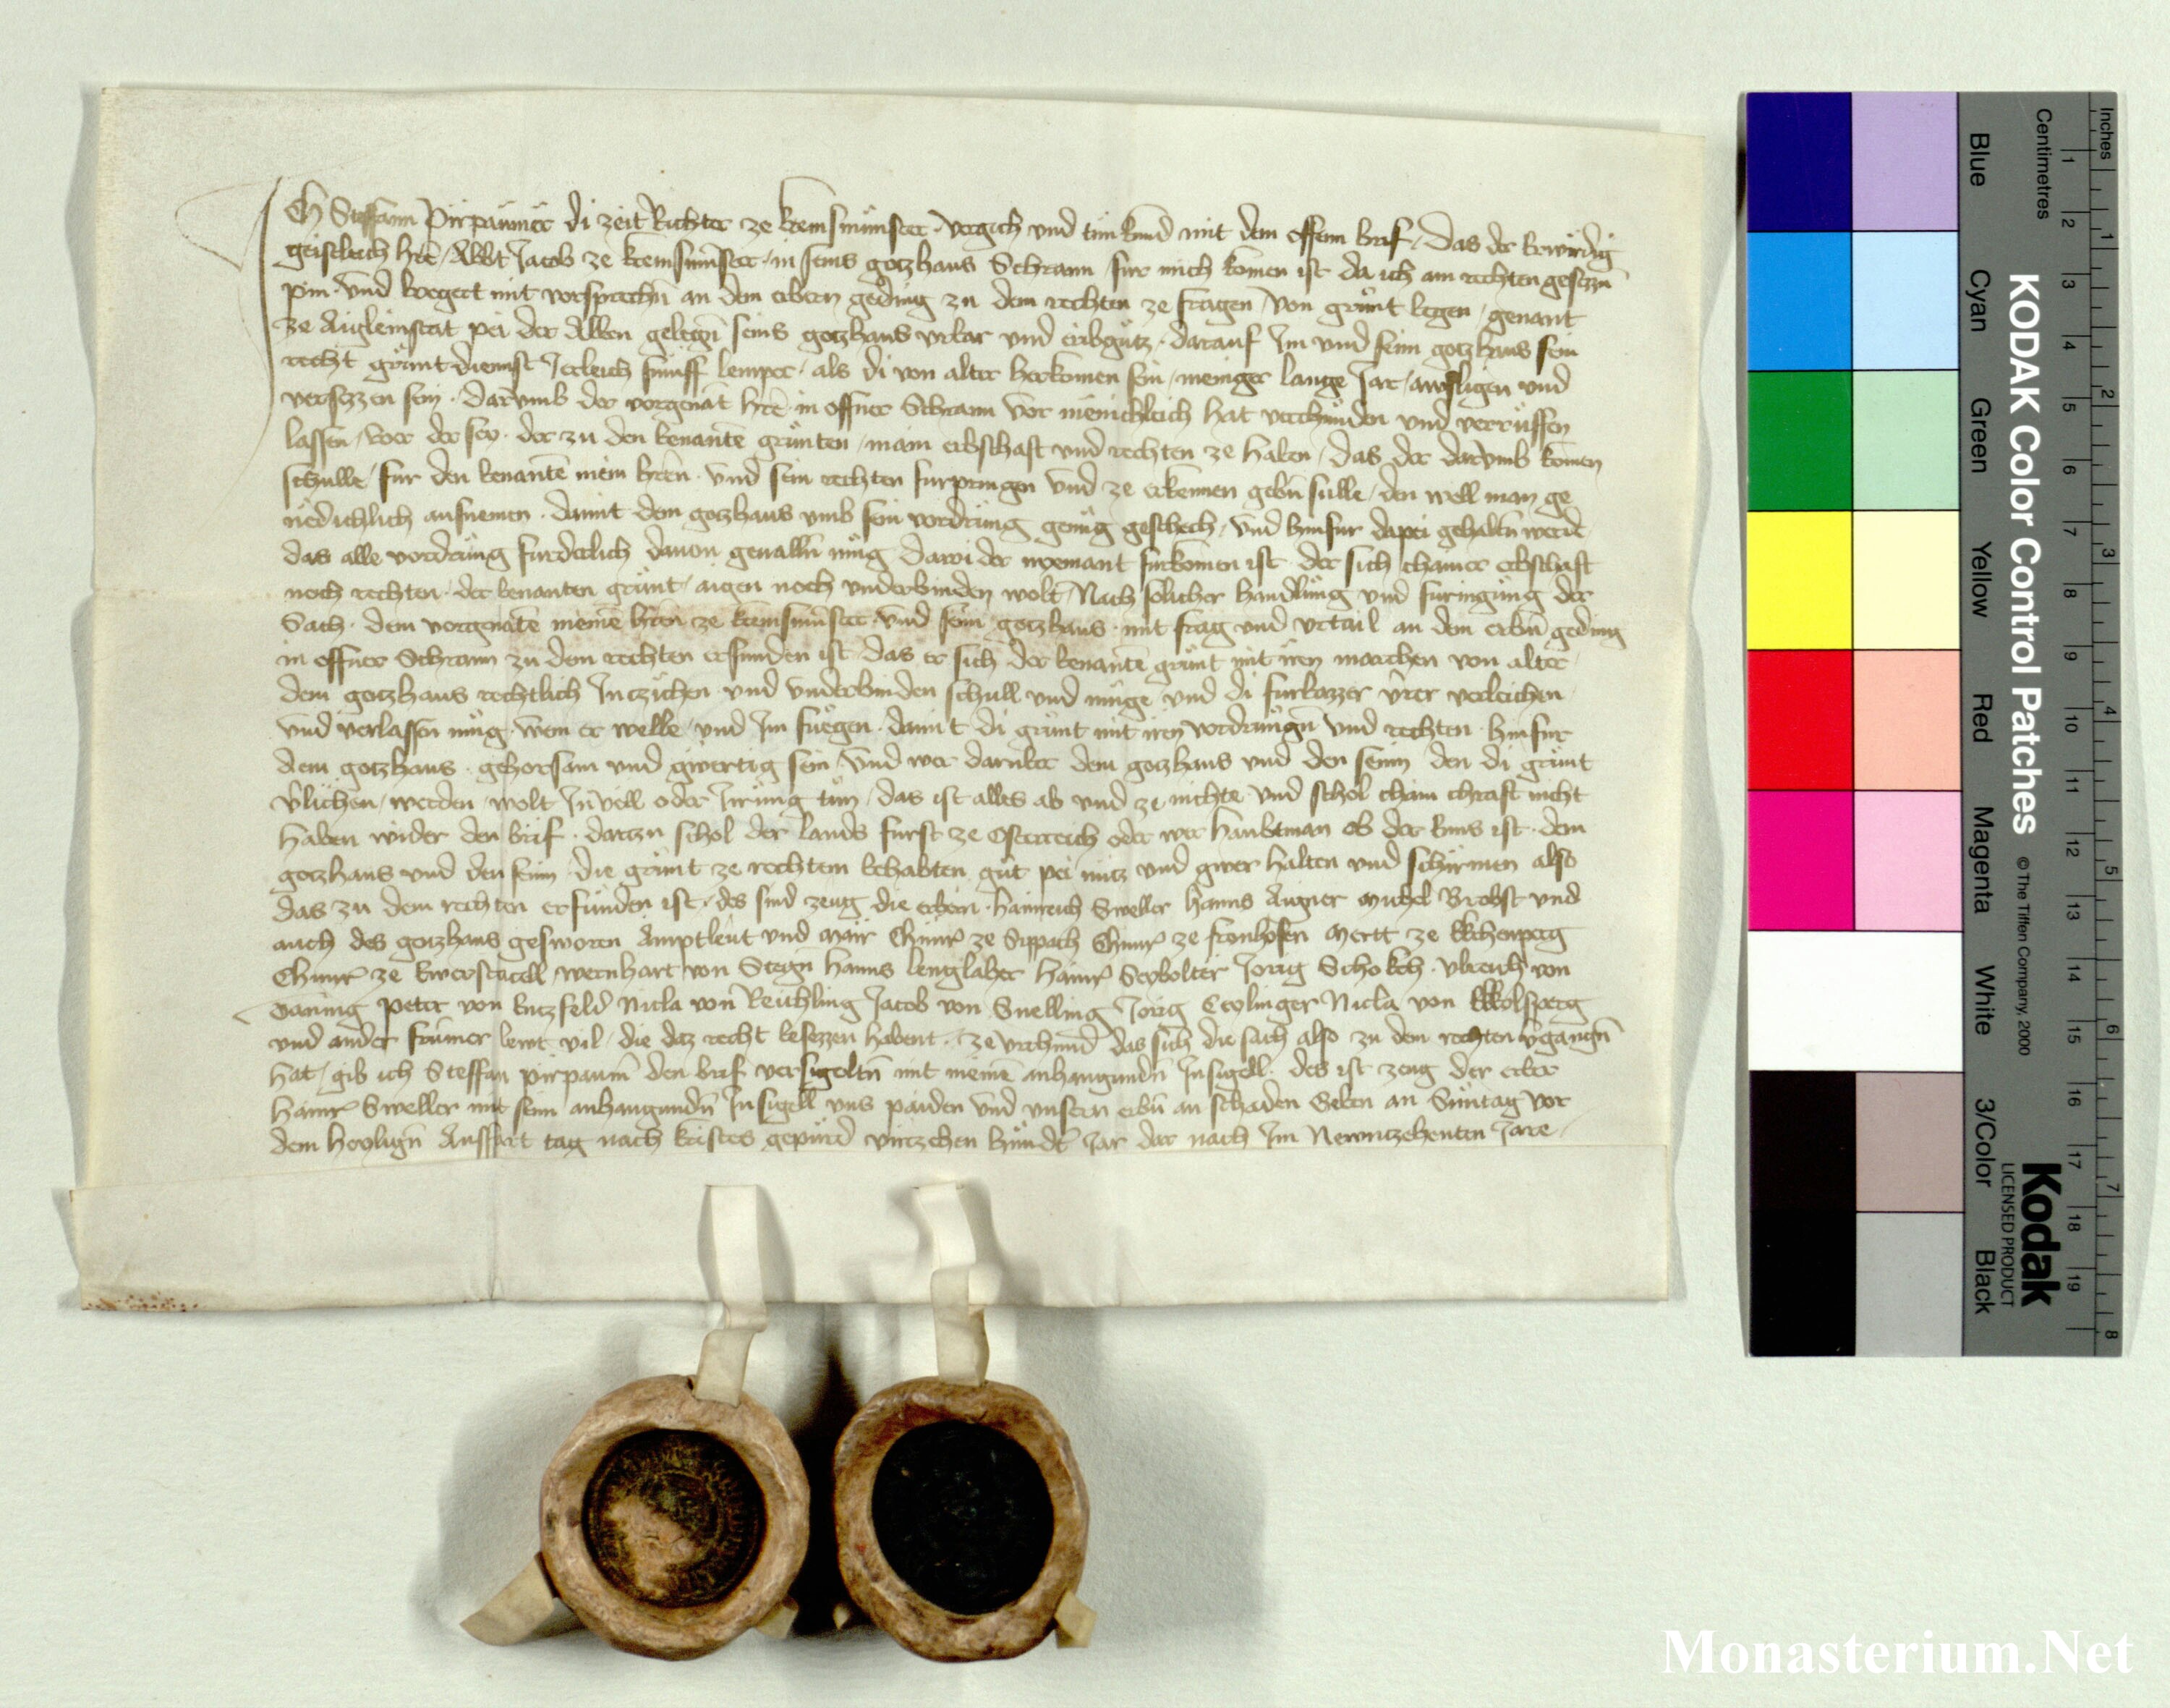 Ich Steffann Pirpaumer di zeit Richter ze kremsmünster vergich und tün kund mit dem offenn brif / Das der Erwirdig
geistleich h're / Abbt Jacob ze kremsmünster in seins gotzhaus Schrann / fur mich komen ist da ich am rechten gesezzn
pin und begert mit vorsprechn an dem erbern geding zu dem rechten ze fragen / von grünt wegen / genant
ze Aigleinstat pei der Alben gelegn seins gotzhaus urbar und eribgütz darauf Im und seim gotzhaus sein
recht grünt dienst Jerleich fünff lemper als di von alter herkomen sein / meniger lange Jar / ausligen und
versezzen sein darumb der vorgenāt h're in offner Schrann vor mēnichleich hat verchünden und verrüffen
lassen / wer der sey der zu den benantē grünten / main erbschaft und rechten ze haben / das der darumb komen
schulle / fur den benantē mein h'ren und sein rechten furpringen und ze erkennen gebn sulle / den well man ge
nēdichlich aufnemen damit dem gotzhaus umb sein vordrüng genüg geschech / und hinfur dapei gehaltn werde
das alle vordrüng furderlich dauon geualln müg dawider nyemant furkomen ist der sich chainer erbschaft
noch rechten der benanten grünt / aigen noch underbinden wolt / Nach solicher handlüng und furingüng der
Sach dem vorgenātē meinē h'ren ze kremsmünster und seim gotzhaus mit frag und urtail an dem erbn geding
in offner Schrann zu dem rechten erfunden ist / das er sich der benantē grünt mit iren marchen von alter
dem gotzhaus rechtlich Inczichen und underbinden schull und müge / und di furbazzer verleichen
und verlassen müg wem er welle / und Im fuegen damit di grünt mit iren vordrüngn und rechten hinfur
dem gotzhaus gehorsam und gwertig sein / Und wer darüber dem gotzhaus und den seinn den di grünt
v'lichen / werden / wolt Inuell oder Irrüng tün / das ist alles ab und ze nichte und schol chain chraft nicht
haben wider den brif darzu schol der lands furst ze Osterreich oder wer haubtman ob der Enns ist dem
gotzhaus und den seinn die grünt ze rechtem behabten güt pei nütz und gwer halten und schirmen also
das zu dem rechten erfunden ist / des sind zeug die erbern hainreich Sweller hanns Aigner Michel Brobst und
auch des gotzhaus gesworen Amptleut und Mair Chunr' ze Sippach Chunr' ze fronhofen Mertt ze Eichenperg
Chunr' ze wernhart von Stegn hanns lenglaher hainr' Seybolter Jorig Schokch Ulreich von
Oaning peter von kutzfeld Nicla von Reuchling Jacob von Snelling Jorig Nicla von Wolfsperg
und ander frümer lewt vil / die daz recht besezzen habent ze urchünd das sich die sach also zu dem rechten v'gangn
hat / gib ich Steffan pirpaum den brif versigeltn mit meinē anhangundn Insigell des ist zeug der erber
hainr' Sweller mit seim anhangundn Insigell uns paiden und unsern erbn an schaden Geben an Süntag vor
dem heylign Auffart tag nach kristes gepürd virtzehen hündt Jar dar nach Im Newntzehenten Jare
Inches
Centimetres
1 2 3 4 5 6 7 8 9 10 11 12 13 14 15 16 17 18 19
1 2 3 4 5 6 7 8
KODAK Color Control Patches © The Tiffen Company, 2000
Kodak
LICENSED PRODUCT
Blue
Cyan
Green
Yellow
Red
Magenta
White
3/Color
Black
Monasterium.Net